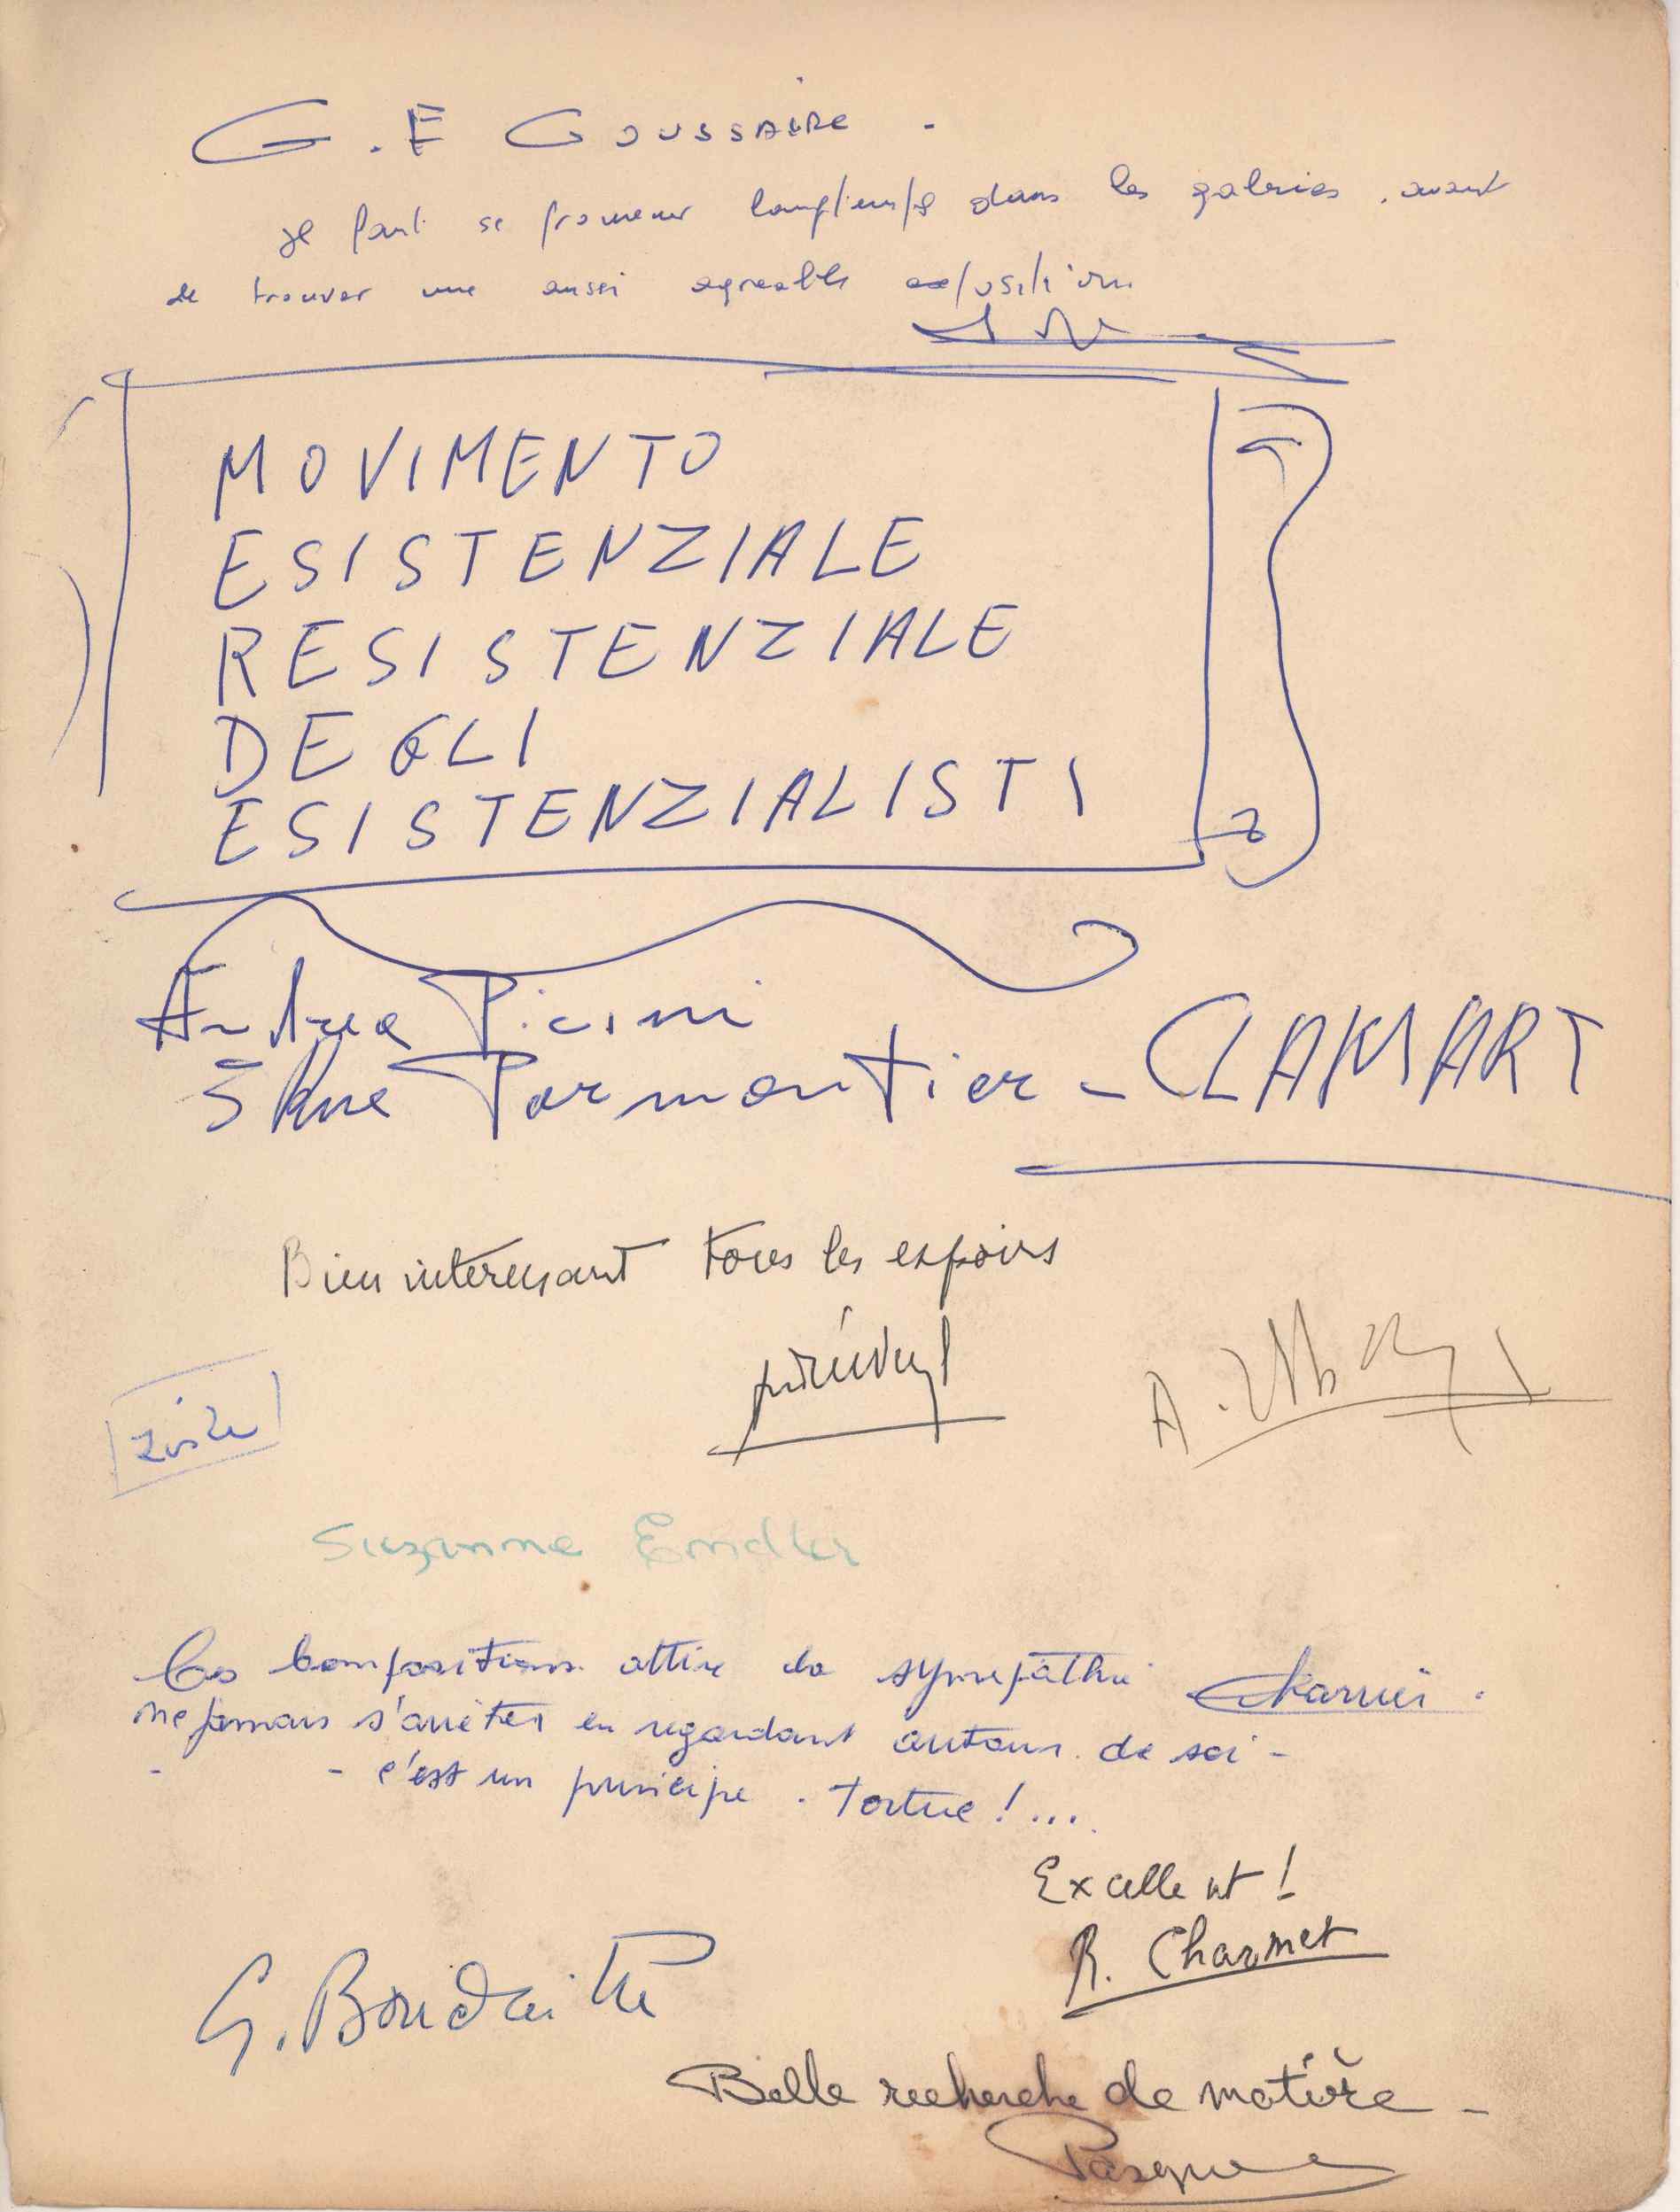 G. E GOUSSAIRE.
Il faut se promener longtemps dans les galeries, avant
de trouver une aussi agreable exposition
MOVIMENTO
ESISTENZIALE
RESISTENZIALE
DEGLI
ESISTENZIALISTI
Andrea Picini
5 Rue Parmentier - CLAMART
Bien interessant tous les espoirs
A.
Suzanne Endler
Ces compositions attire la sympathie
ne jamais s'arrêter en regardant autour de soi -
- - c'est un principe. Tortue!...
Excellent!
R. Charmet
G. Boudaille
Belle recherche de matière -
Pasque